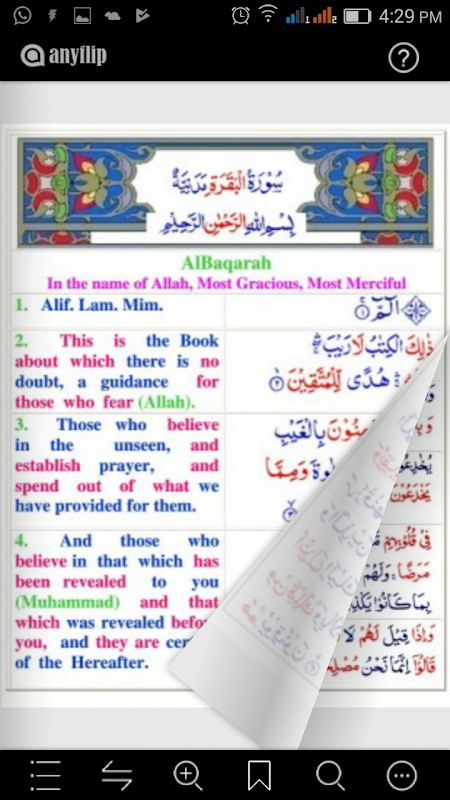 4:29 PM
anyflip
سُوْرَةُ الْبَقَرَةِ مَدَنِيَّةٌ
بِسْمِ اللهِ الرَّحْمٰنِ الرَّحِيْمِ
AlBaqarah
In the name of Allah, Most Gracious, Most Merciful
1. Alif. Lam. Mim.
الٓمّٓ ۚ﴿۱﴾
2. This is the Book
about which there is no
doubt, a guidance for
those who fear (Allah).
ذٰلِكَ الْكِتٰبُ لَا رَيْبَ
هُدًى لِّلْمُتَّقِيْنَ ﴿۲﴾
3. Those who believe
in the unseen, and
establish prayer, and
spend out of what we
have provided for them.
بِالْغَيْبِ
وَمِمَّا
4. And those who
believe in that which has
been revealed to you
(Muhammad) and that
which was revealed
you, and they are
of the Hereafter.
فِيْ قُلُوْبِهِمْ
مَرَضًا ۚ وَلَهُمْ
بِمَا كَانُوْا
وَاِذَا قِيْلَ لَهُمْ لَا
قَالُوْٓا اِنَّمَا نَحْنُ